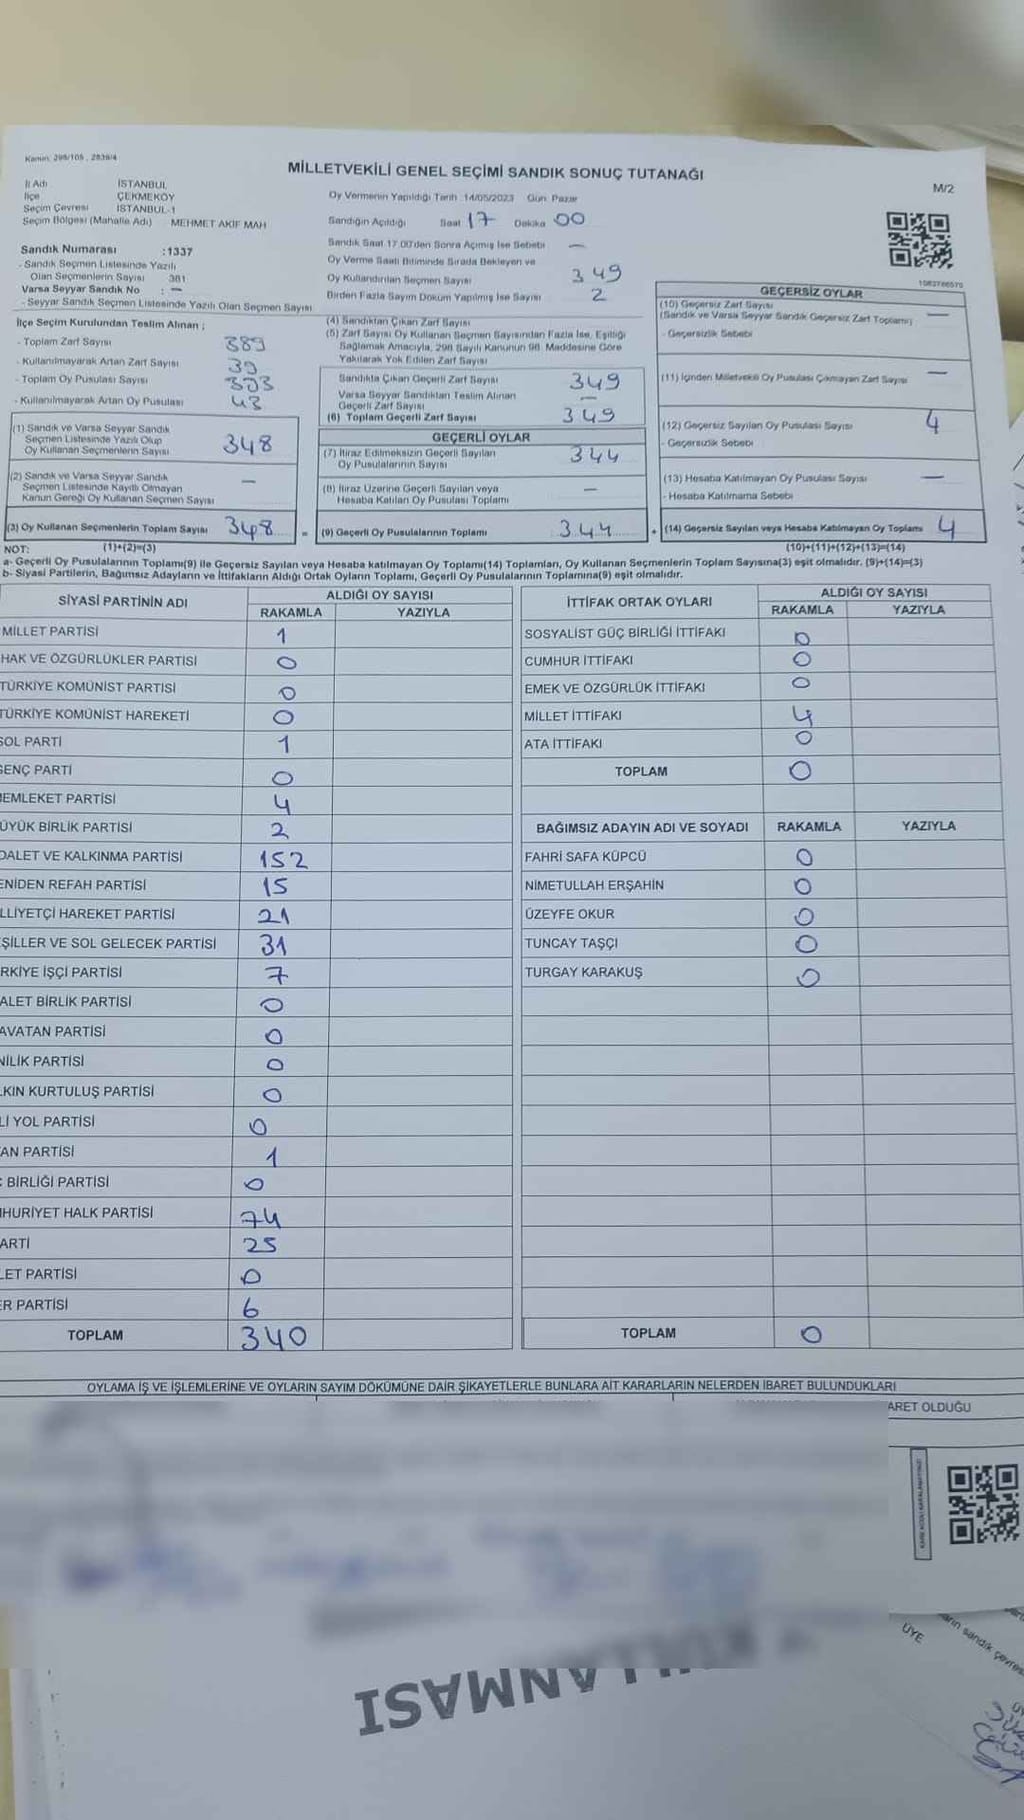 Kanun: 298/105 , 2839/4
MİLLETVEKİLİ GENEL SEÇİMİ SANDIK SONUÇ TUTANAĞI
M/2
İl Adı İSTANBUL
İlçe ÇEKMEKÖY
Seçim Çevresi İSTANBUL-1
Seçim Bölgesi (Mahalle Adı) MEHMET AKİF MAH
Sandık Numarası :1337
- Sandık Seçmen Listesinde Yazılı
Olan Seçmenlerin Sayısı 381
Varsa Seyyar Sandık No : —
- Seyyar Sandık Seçmen Listesinde Yazılı Olan Seçmen Sayısı
İlçe Seçim Kurulundan Teslim Alınan ;
- Toplam Zarf Sayısı 389
- Kullanılmayarak Artan Zarf Sayısı 39
- Toplam Oy Pusulası Sayısı
- Kullanılmayarak Artan Oy Pusulası 43
(1) Sandık ve Varsa Seyyar Sandık
Seçmen Listesinde Yazılı Olup
Oy Kullanan Seçmenlerin Sayısı 348
(2) Sandık ve Varsa Seyyar Sandık
Seçmen Listesinde Kayıtlı Olmayan
Kanun Gereği Oy Kullanan Seçmen Sayısı —
(3) Oy Kullanan Seçmenlerin Toplam Sayısı 348
(1)+(2)=(3)
Oy Vermenin Yapıldığı Tarih 14/05/2023 Gün Pazar
Sandığın Açıldığı Saat 17 Dakika 00
Sandık Saat 17.00'den Sonra Açılmış İse Sebebi —
Oy Verme Saati Bitiminde Sırada Bekleyen ve
Oy Kullandırılan Seçmen Sayısı 349
Birden Fazla Sayım Döküm Yapılmış İse Sayısı 2
(4) Sandıktan Çıkan Zarf Sayısı
(5) Zarf Sayısı Oy Kullanan Seçmen Sayısından Fazla İse, Eşitliği
Sağlamak Amacıyla, 298 Sayılı Kanunun 98. Maddesine Göre
Yakılarak Yok Edilen Zarf Sayısı
Sandıkta Çıkan Geçerli Zarf Sayısı 349
Varsa Seyyar Sandıktan Teslim Alınan
Geçerli Zarf Sayısı —
(6) Toplam Geçerli Zarf Sayısı 349
GEÇERLİ OYLAR
(7) İtiraz Edilmeksizin Geçerli Sayılan
Oy Pusulalarının Sayısı 344
(8) İtiraz Üzerine Geçerli Sayılan veya
Hesaba Katılan Oy Pusulası Toplamı —
= (9) Geçerli Oy Pusulalarının Toplamı 344
1083786570
GEÇERSİZ OYLAR
(10) Geçersiz Zarf Sayısı —
(Sandık ve Varsa Seyyar Sandık Geçersiz Zarf Toplamı)
- Geçersizlik Sebebi
(11) İçinden Milletvekili Oy Pusulası Çıkmayan Zarf Sayısı —
(12) Geçersiz Sayılan Oy Pusulası Sayısı 4
- Geçersizlik Sebebi
(13) Hesaba Katılmayan Oy Pusulası Sayısı —
- Hesaba Katılmama Sebebi
+ (14) Geçersiz Sayılan veya Hesaba Katılmayan Oy Toplamı 4
(10)+(11)+(12)+(13)=(14)
NOT:
a- Geçerli Oy Pusulalarının Toplamı(9) ile Geçersiz Sayılan veya Hesaba katılmayan Oy Toplamı(14) Toplamları, Oy Kullanan Seçmenlerin Toplam Sayısına(3) eşit olmalıdır. (9)+(14)=(3)
b- Siyasi Partilerin, Bağımsız Adayların ve İttifakların Aldığı Ortak Oyların Toplamı, Geçerli Oy Pusulalarının Toplamına(9) eşit olmalıdır.
SİYASİ PARTİNİN ADI ALDIĞI OY SAYISI
RAKAMLA YAZIYLA
MİLLET PARTİSİ 1
HAK VE ÖZGÜRLÜKLER PARTİSİ 0
TÜRKİYE KOMÜNİST PARTİSİ 0
TÜRKİYE KOMÜNİST HAREKETİ 0
SOL PARTİ 1
GENÇ PARTİ 0
MEMLEKET PARTİSİ 4
ÜYÜK BİRLİK PARTİSİ 2
DALET VE KALKINMA PARTİSİ 152
ENİDEN REFAH PARTİSİ 15
LLİYETÇİ HAREKET PARTİSİ 21
ŞİLLER VE SOL GELECEK PARTİSİ 31
RKİYE İŞÇİ PARTİSİ 7
ALET BİRLİK PARTİSİ 0
AVATAN PARTİSİ 0
NİLİK PARTİSİ 0
LKIN KURTULUŞ PARTİSİ 0
Lİ YOL PARTİSİ 0
AN PARTİSİ 1
BİRLİĞİ PARTİSİ 0
HURİYET HALK PARTİSİ 74
ARTİ 25
LET PARTİSİ 0
ER PARTİSİ 6
TOPLAM 340
İTTİFAK ORTAK OYLARI ALDIĞI OY SAYISI
RAKAMLA YAZIYLA
SOSYALİST GÜÇ BİRLİĞİ İTTİFAKI 0
CUMHUR İTTİFAKI 0
EMEK VE ÖZGÜRLÜK İTTİFAKI 0
MİLLET İTTİFAKI 4
ATA İTTİFAKI 0
TOPLAM 0
BAĞIMSIZ ADAYIN ADI VE SOYADI RAKAMLA YAZIYLA
FAHRİ SAFA KÜPCÜ 0
NİMETULLAH ERŞAHİN 0
ÜZEYFE OKUR 0
TUNCAY TAŞÇI 0
TURGAY KARAKUŞ 0
TOPLAM 0
OYLAMA İŞ VE İŞLEMLERİNE VE OYLARIN SAYIM DÖKÜMÜNE DAİR ŞİKAYETLERLE BUNLARA AİT KARARLARIN NELERDEN İBARET BULUNDUKLARI
ARET OLDUĞU
KARE KODU KARALAMAYINIZ
ÜYE
arın sandık çevres
KULLANMASI